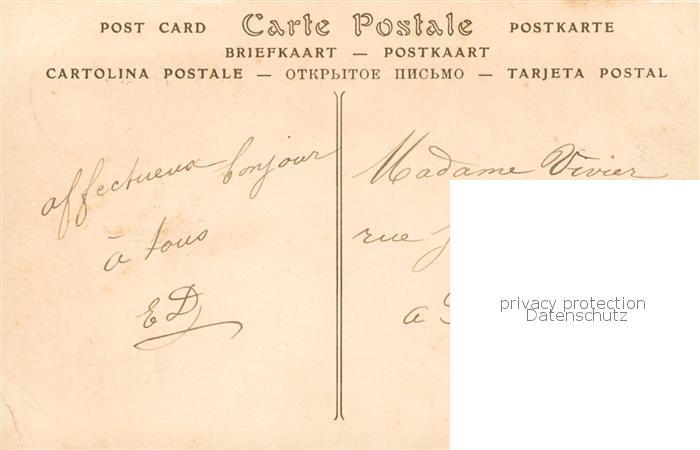 POST CARD Carte Postale POSTKARTE
BRIEFKAART — POSTKAART
CARTOLINA POSTALE — ОТКРЫТОЕ ПИСЬМО — TARJETA POSTAL
affectueux bonjour
à tous
ED
Madame Vivier
rue
a
privacy protection
Datenschutz